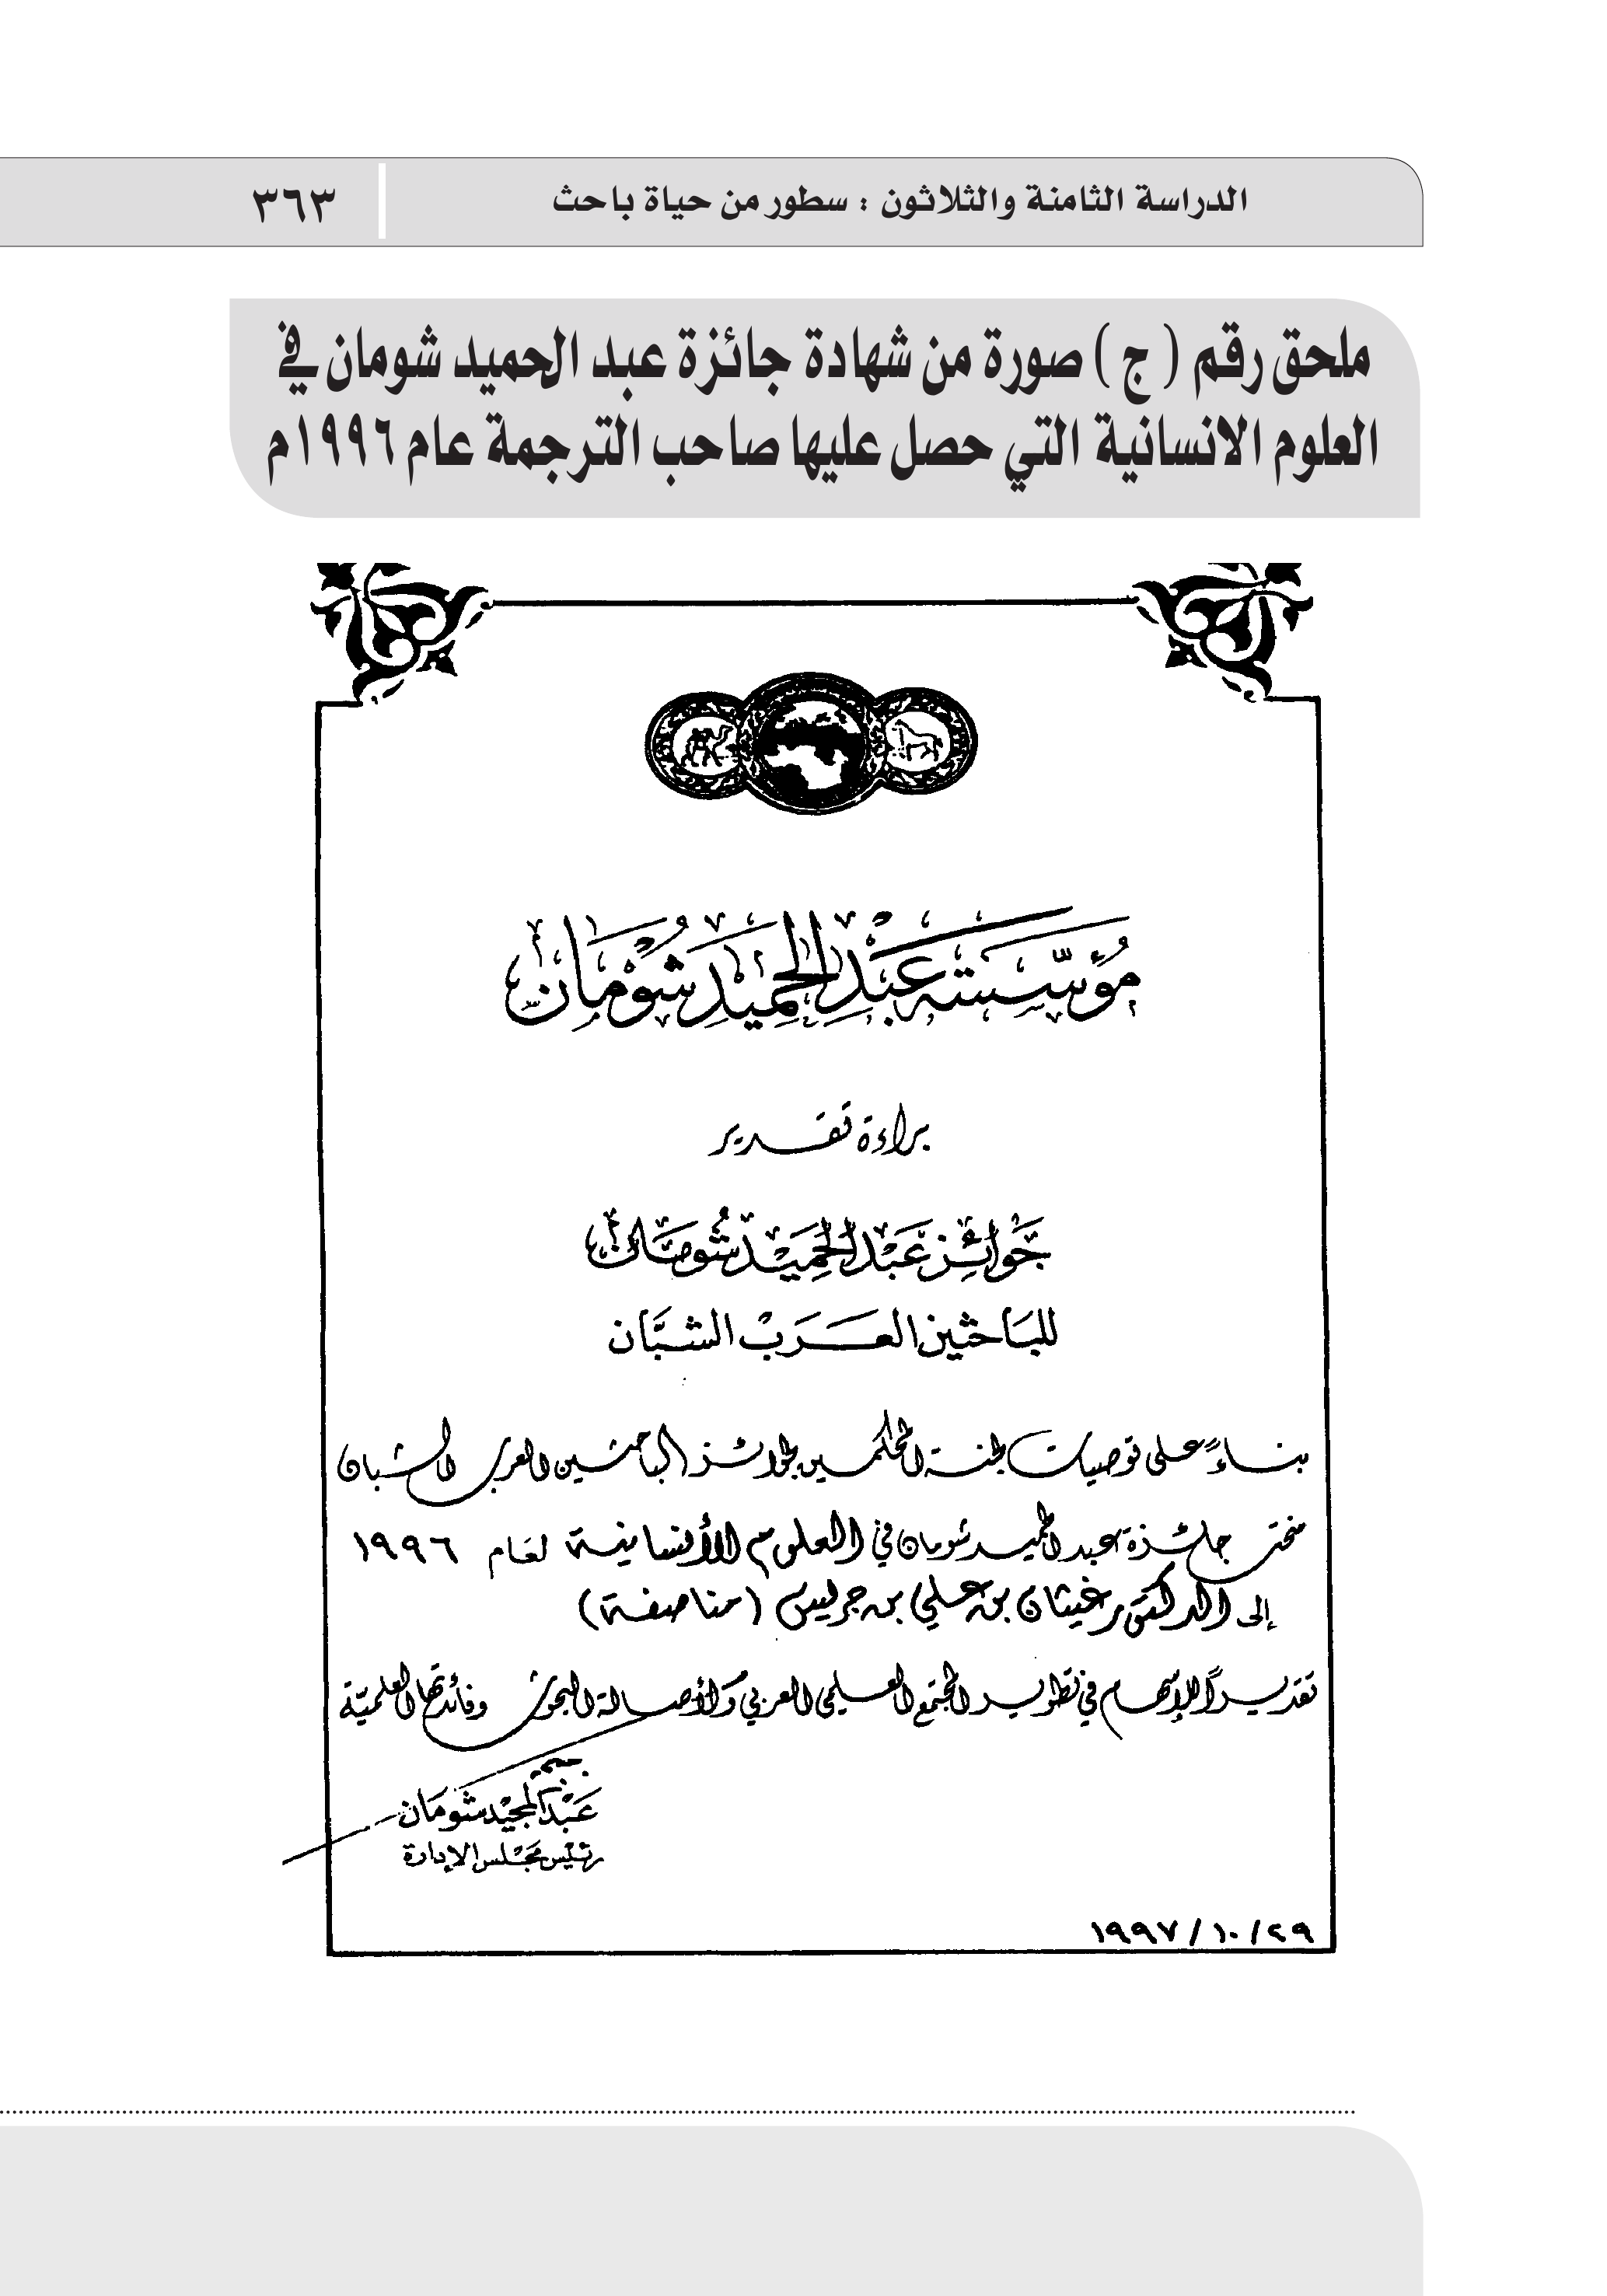 الدراسة الثامنة والثلاثون : سطور من حياة باحث
٣٦٣
ملحق رقم ( ج ) صورة من شهادة جائزة عبد الحميد شومان في
العلوم الانسانية التي حصل عليها صاحب الترجمة عام ١٩٩٦م
مُؤَسَّسَة عَبْدِ الْحَمِيْدِ شُوْمَان
براءة تقدير
جَوَائِز عَبْد الحَمِيْد شُومَان
للبَاحثين العَرَبْ الشبَّان
بناءً على توصيات لجنة المحكمين لجوائز الباحثين العرب الشبان
منحت جائزة عبد الحميد شومان في العلوم الأنسانية لعام ١٩٩٦
إلى الدكتور غيثان بن علي بن جريس (مناصفة)
تقديراً للإسهام في تطوير المجتمع العلمي العربي ولأصالة البحوث وفائدتها العلميّة
عَبْد المجيْد شومَان
رئيْس مَجْلس الإدارة
١٩٩٧/١٠/٢٩